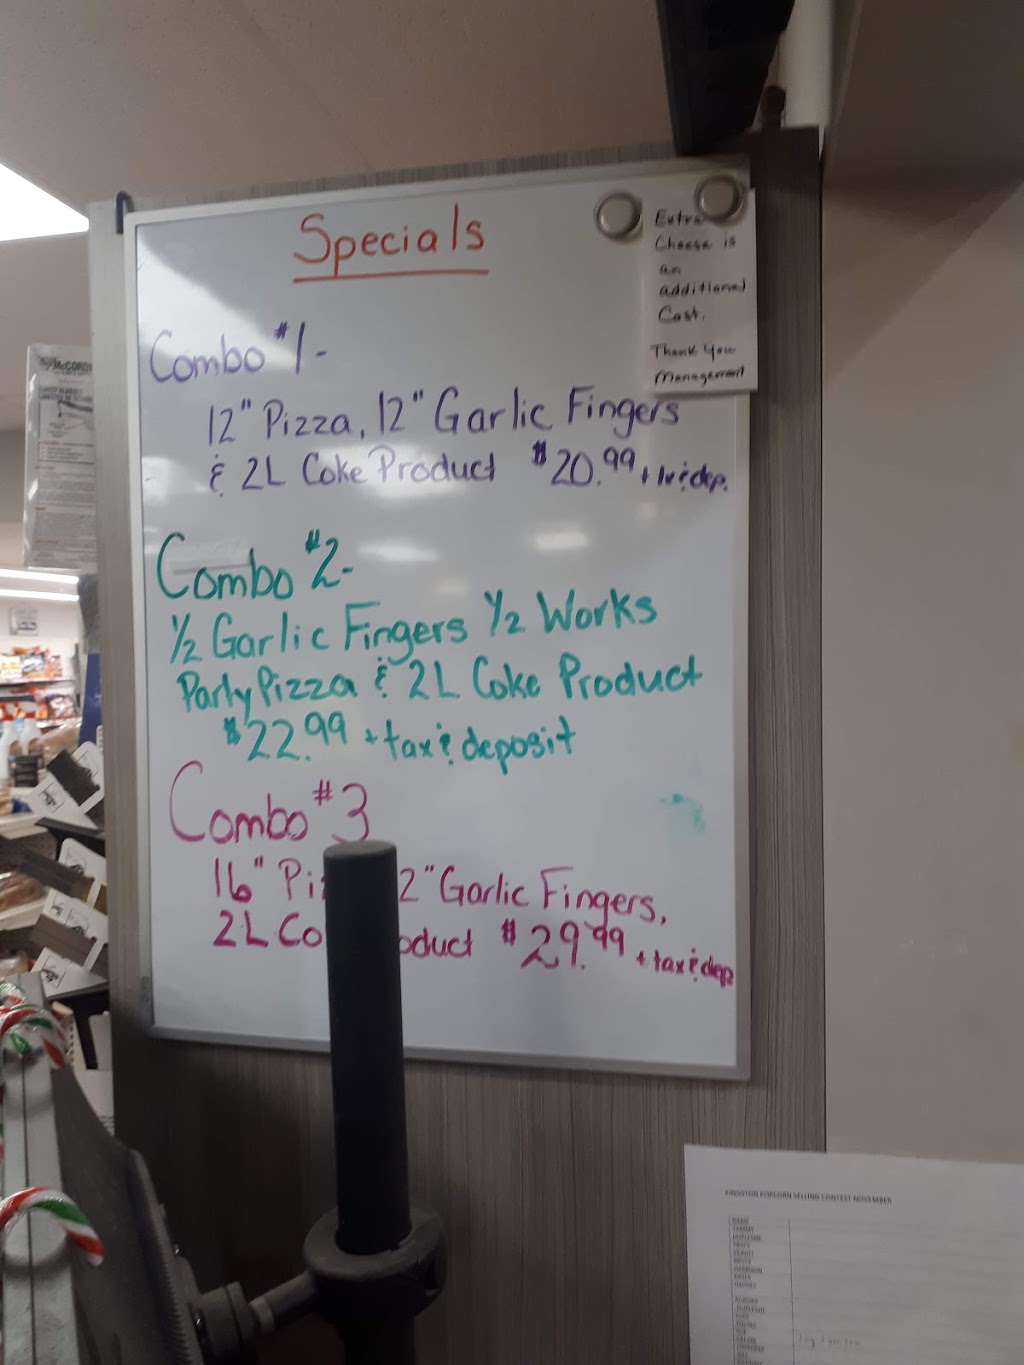 Specials
Extra
Cheese is
an
additional
Cost.
Thank You
Management
Combo #1-
12" Pizza, 12" Garlic Fingers
& 2L Coke Product $20.99 + tx & dep.
Combo #2-
1/2 Garlic Fingers 1/2 Works
Party Pizza & 2L Coke Product
$22.99 + tax & deposit
Combo #3
16" Pi 2" Garlic Fingers,
2L Co oduct $29.99 + tax & dep
McCORD
KINGSTON POPCORN SELLING CONTEST NOVEMBER